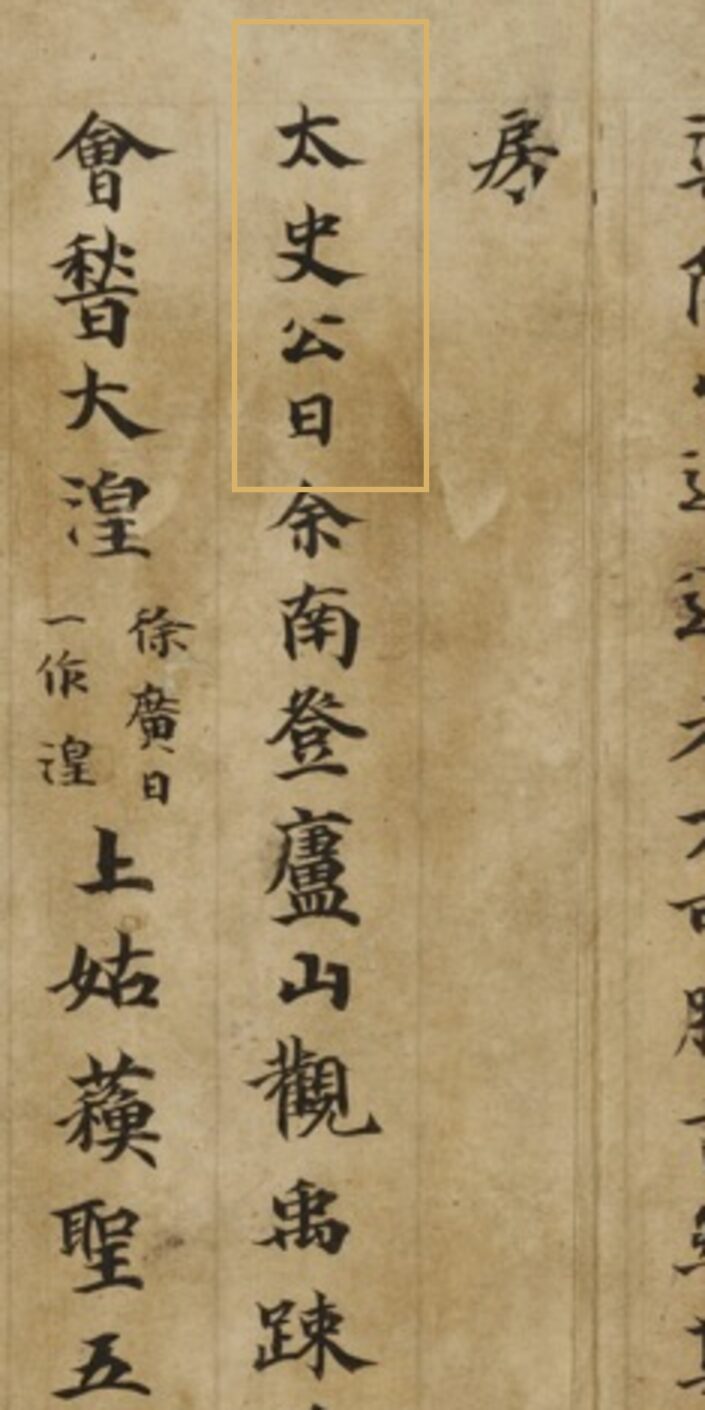 房
太史公曰余南登廬山觀禹踈
會稽大湟徐廣曰一作湟上姑蘓聖五